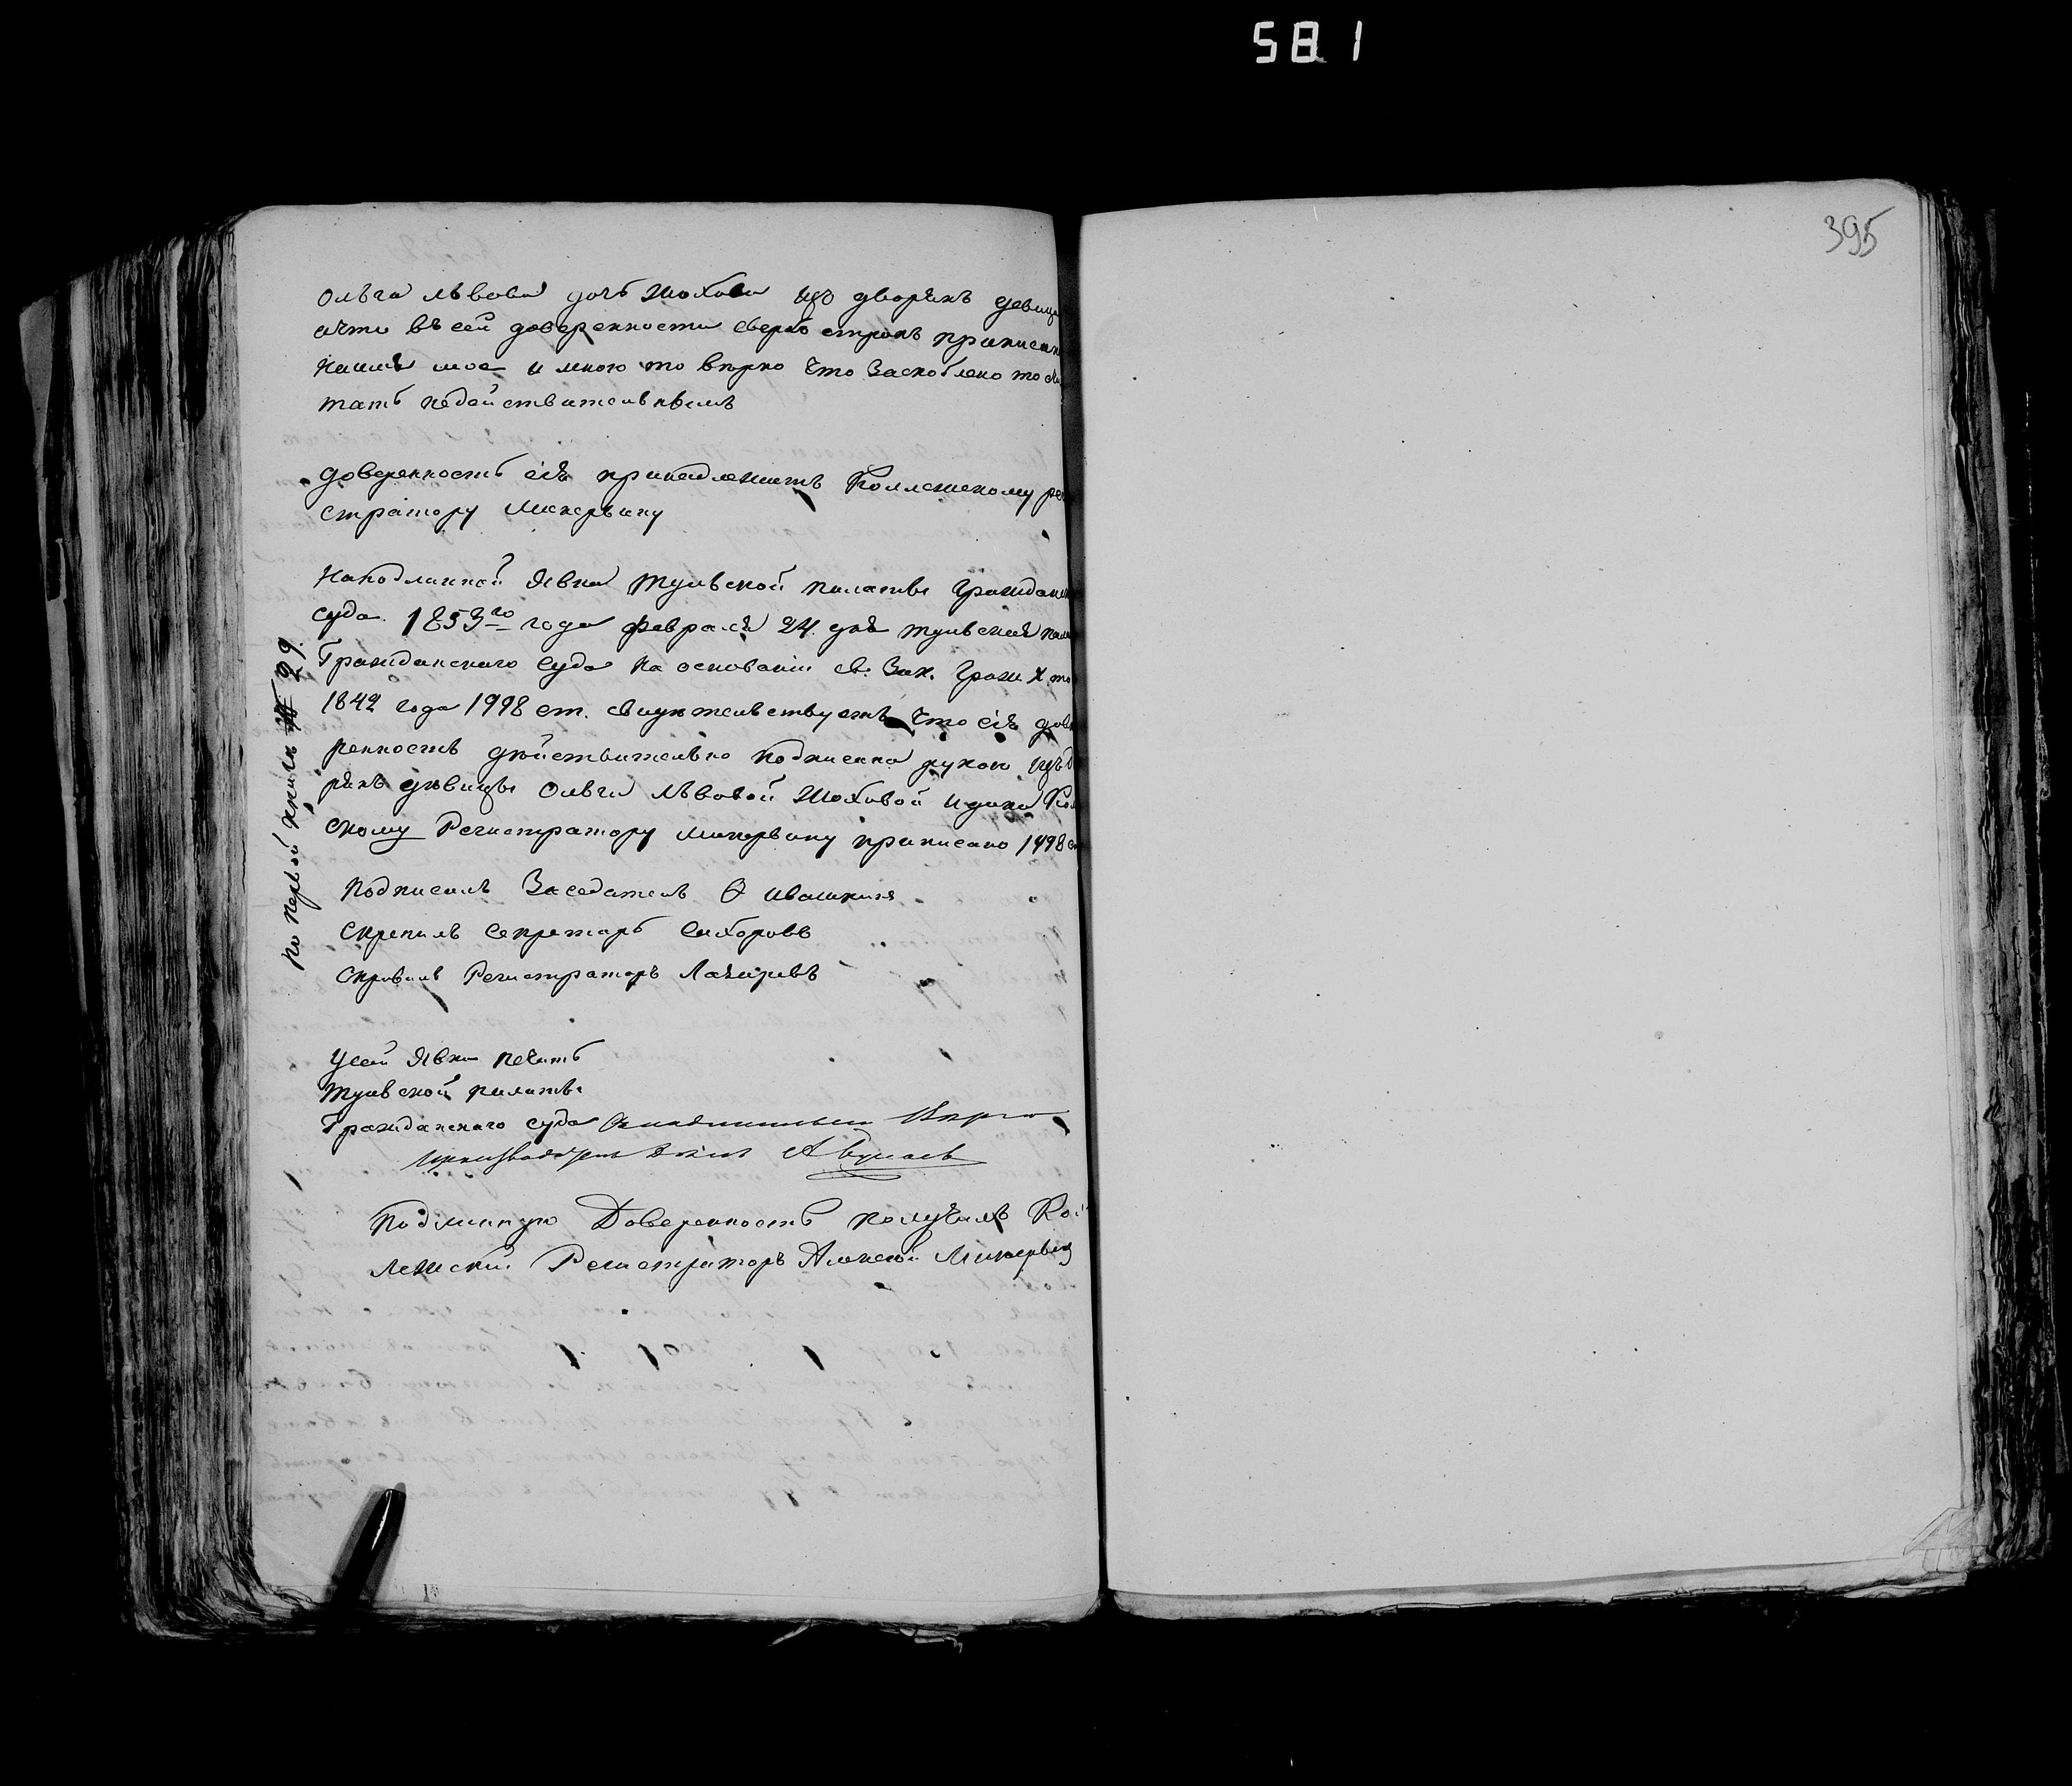 581
395
Ольга Львова дочь Жохова изъ дворянъ девица
ачто въ сей доверенности сверхъ строкъ приписано
мое и мною то верно что заскоблено то
тать недействительнымъ
доверенность сія принадлежитъ Коллежскому
стратору Минервину
Наподлинной явка тульской палаты Гражданск
суда. 1853го года февраля 24. дня тульская пала
Гражданскаго Суда на основаніи св. Зак. Граж X то
1842 года 1998 ст. свидѣтельствуетъ что сія дове
ренность дѣйствительно подписана рукою изъ д
рянъ дѣвицы Ольги Львовой Жоховой и дана Кол
скому Регистратору Минервину приписано 1498 ст
Подписалъ Заседатель Ивашкинъ
Скрепилъ Секретарь Сахаровъ
Справилъ Регистраторъ Лазаревъ
По первой книги № 29.
Усей явки печать
тульской палаты
Гражданскаго суда Сподлиннымъ Верно
Подлинную Доверенность получилъ Кол
лежскій Регистраторъ Алексей Минервин